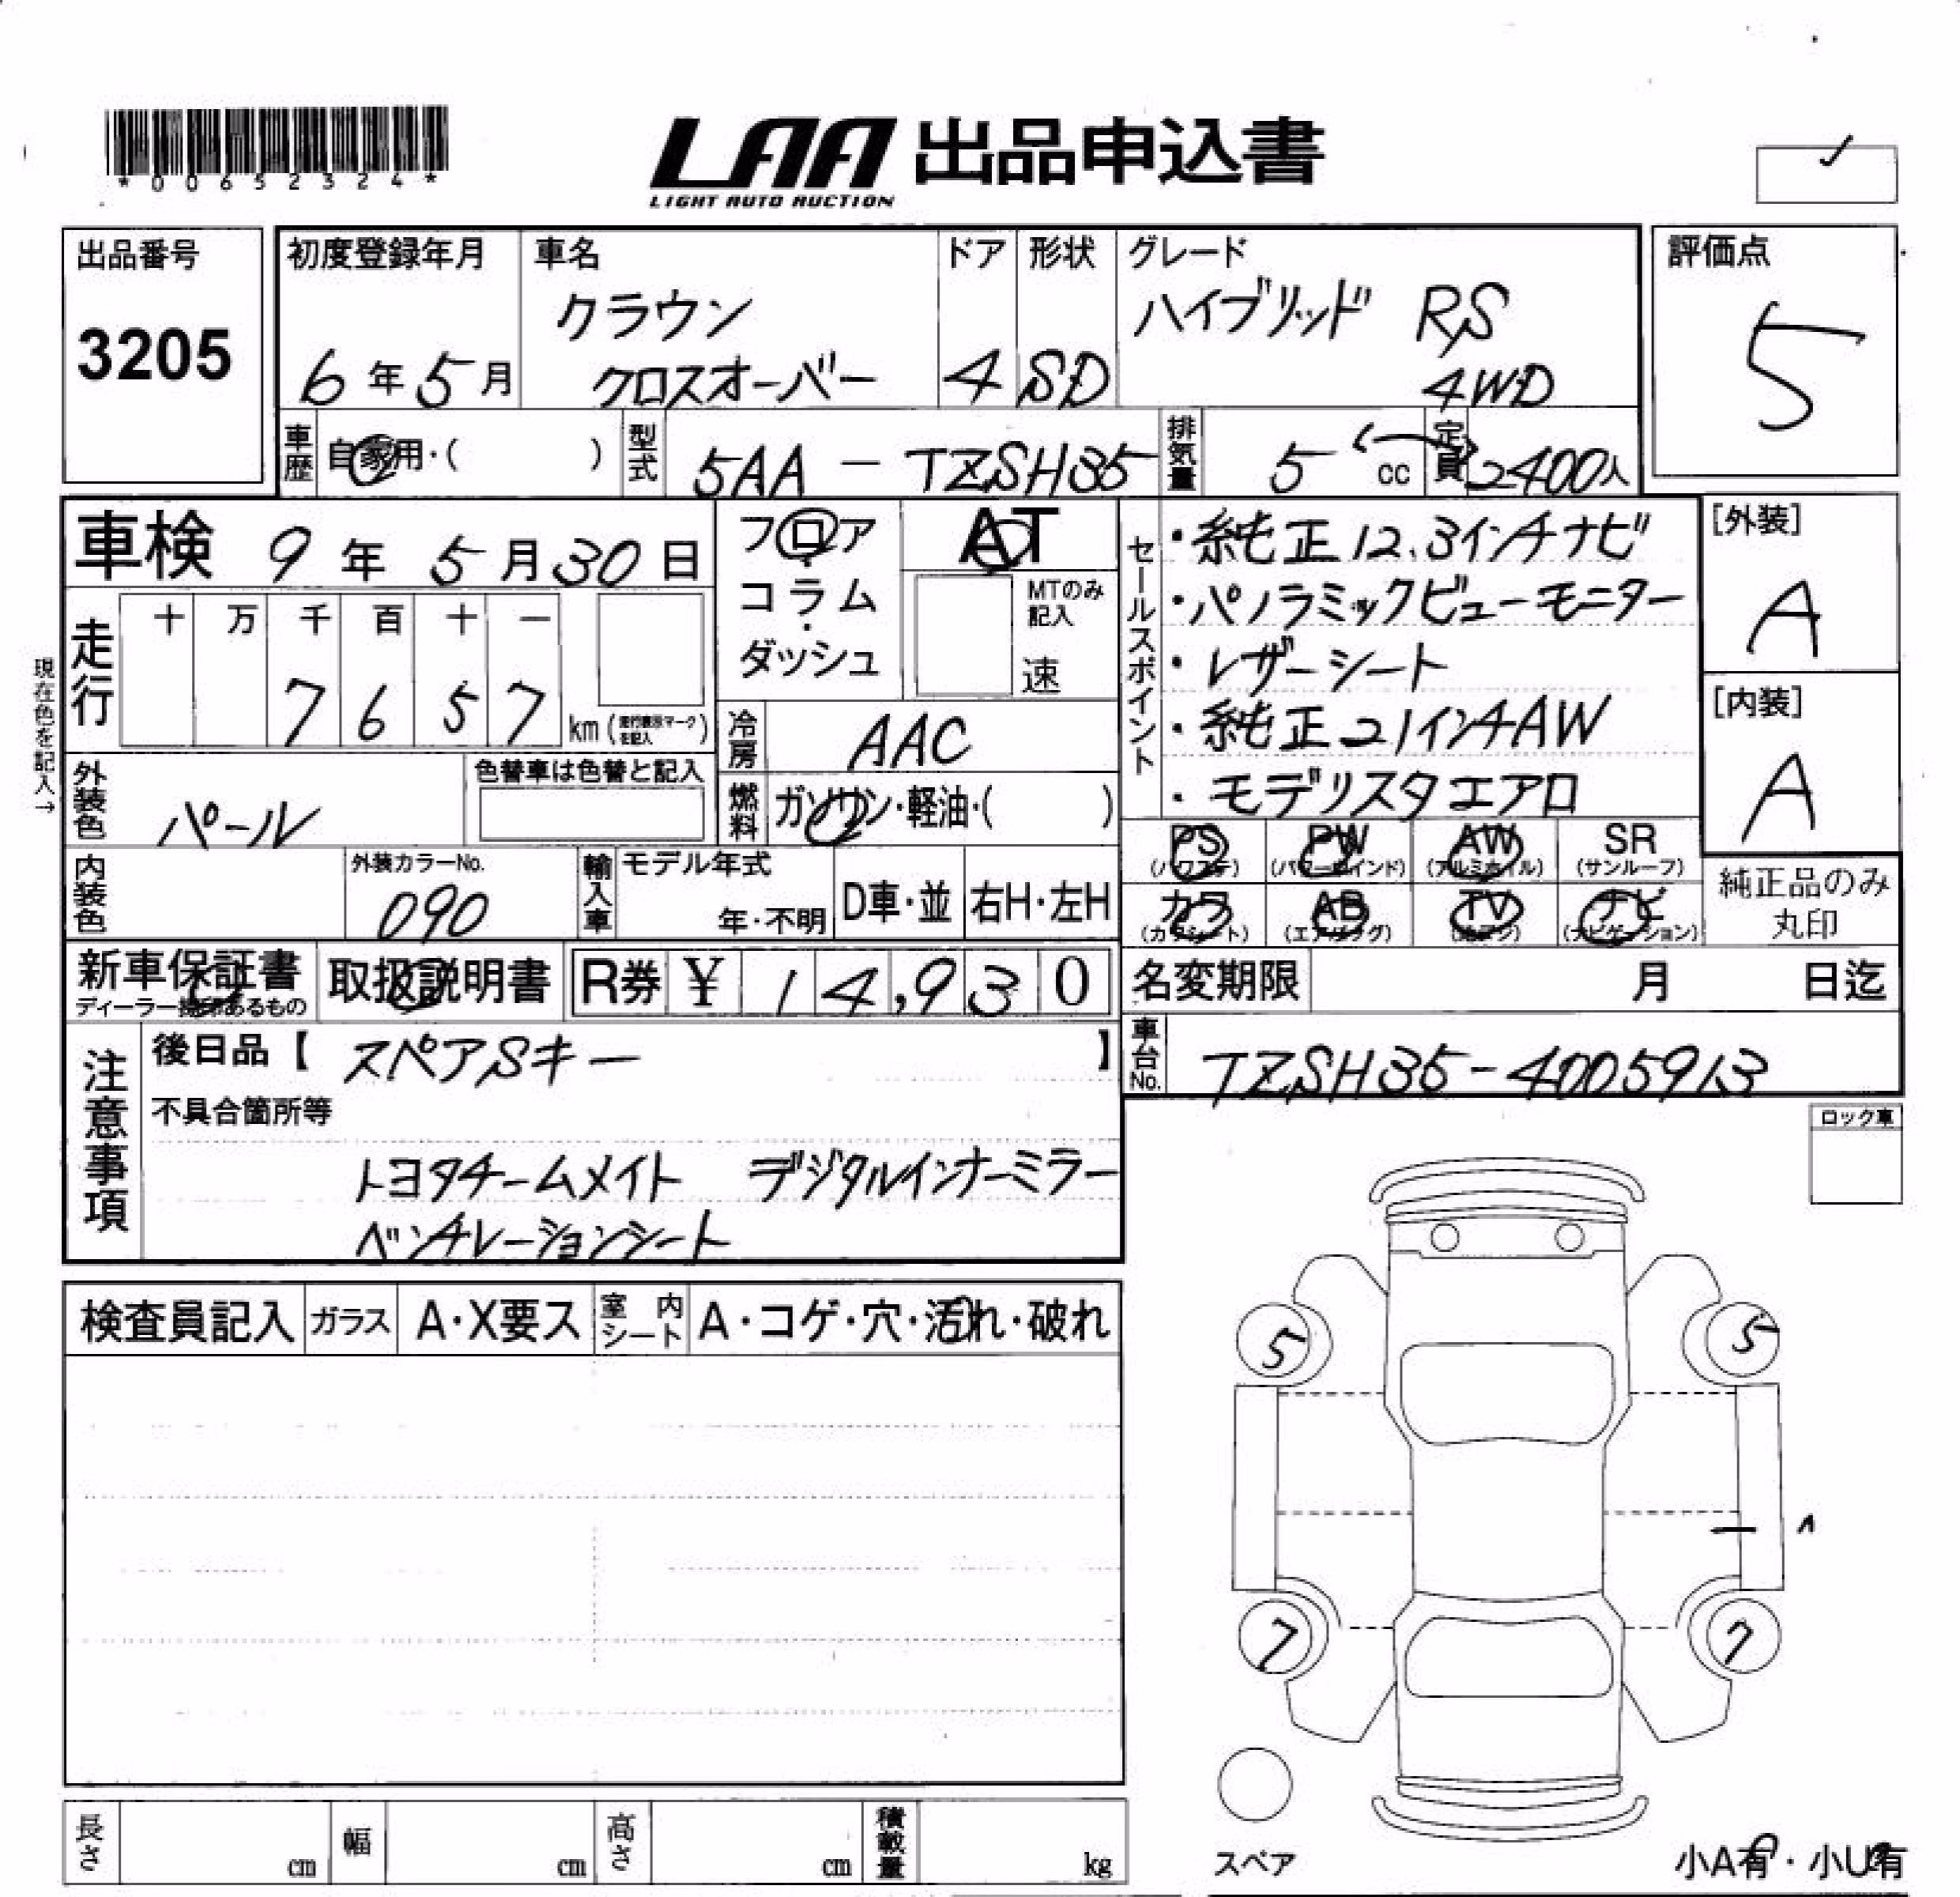 *00652324*
LAA 出品申込書
LIGHT AUTO AUCTION
出品番号
3205
初度登録年月
6年5月
車名
クラウン
クロスオーバー
ドア
4
形状
SD
グレード
ハイブリッド RS
4WD
評価点
5
車歴
自家用・( )
型式
5AA - TZSH35
排気量
5 cc
定員
2400人
車検 9年5月30日
フロア・コラム・ダッシュ
AT
MTのみ記入
速
セールスポイント
・純正12.3インチナビ
・パノラミックビューモニター
・レザーシート
・純正21インチAW
・モデリスタエアロ
[外装]
A
[内装]
A
現在色を記入→
走行
十 万 千 百 十 一
7 6 5 7
km(走行表示マークを記入)
冷房
AAC
外装色
パール
色替車は色替と記入
燃料
ガソリン・軽油・( )
PS
(パワステ)
PW
(パワーウインド)
AW
(アルミホイル)
SR
(サンルーフ)
カワ
(カワシート)
AB
(エアバッグ)
TV
ナビ
(ナビゲーション)
純正品のみ
丸印
内装色
外装カラーNo.
090
輸入車
モデル年式
年・不明
D車・並
右H・左H
新車保証書
取扱説明書
R券 ¥ 14,930
名変期限 月 日迄
車台No.
TZSH35-4005913
注意事項
後日品【 スペアSキー 】
不具合箇所等
トヨタチームメイト デジタルインナーミラー
ベンチレーションシート
ロック車
検査員記入
ガラス
A・X要ス
室内シート
A・コゲ・穴・汚れ・破れ
5
5
7
7
スペア
長さ cm
幅 cm
高さ cm
積載量 kg
小A有・小U有